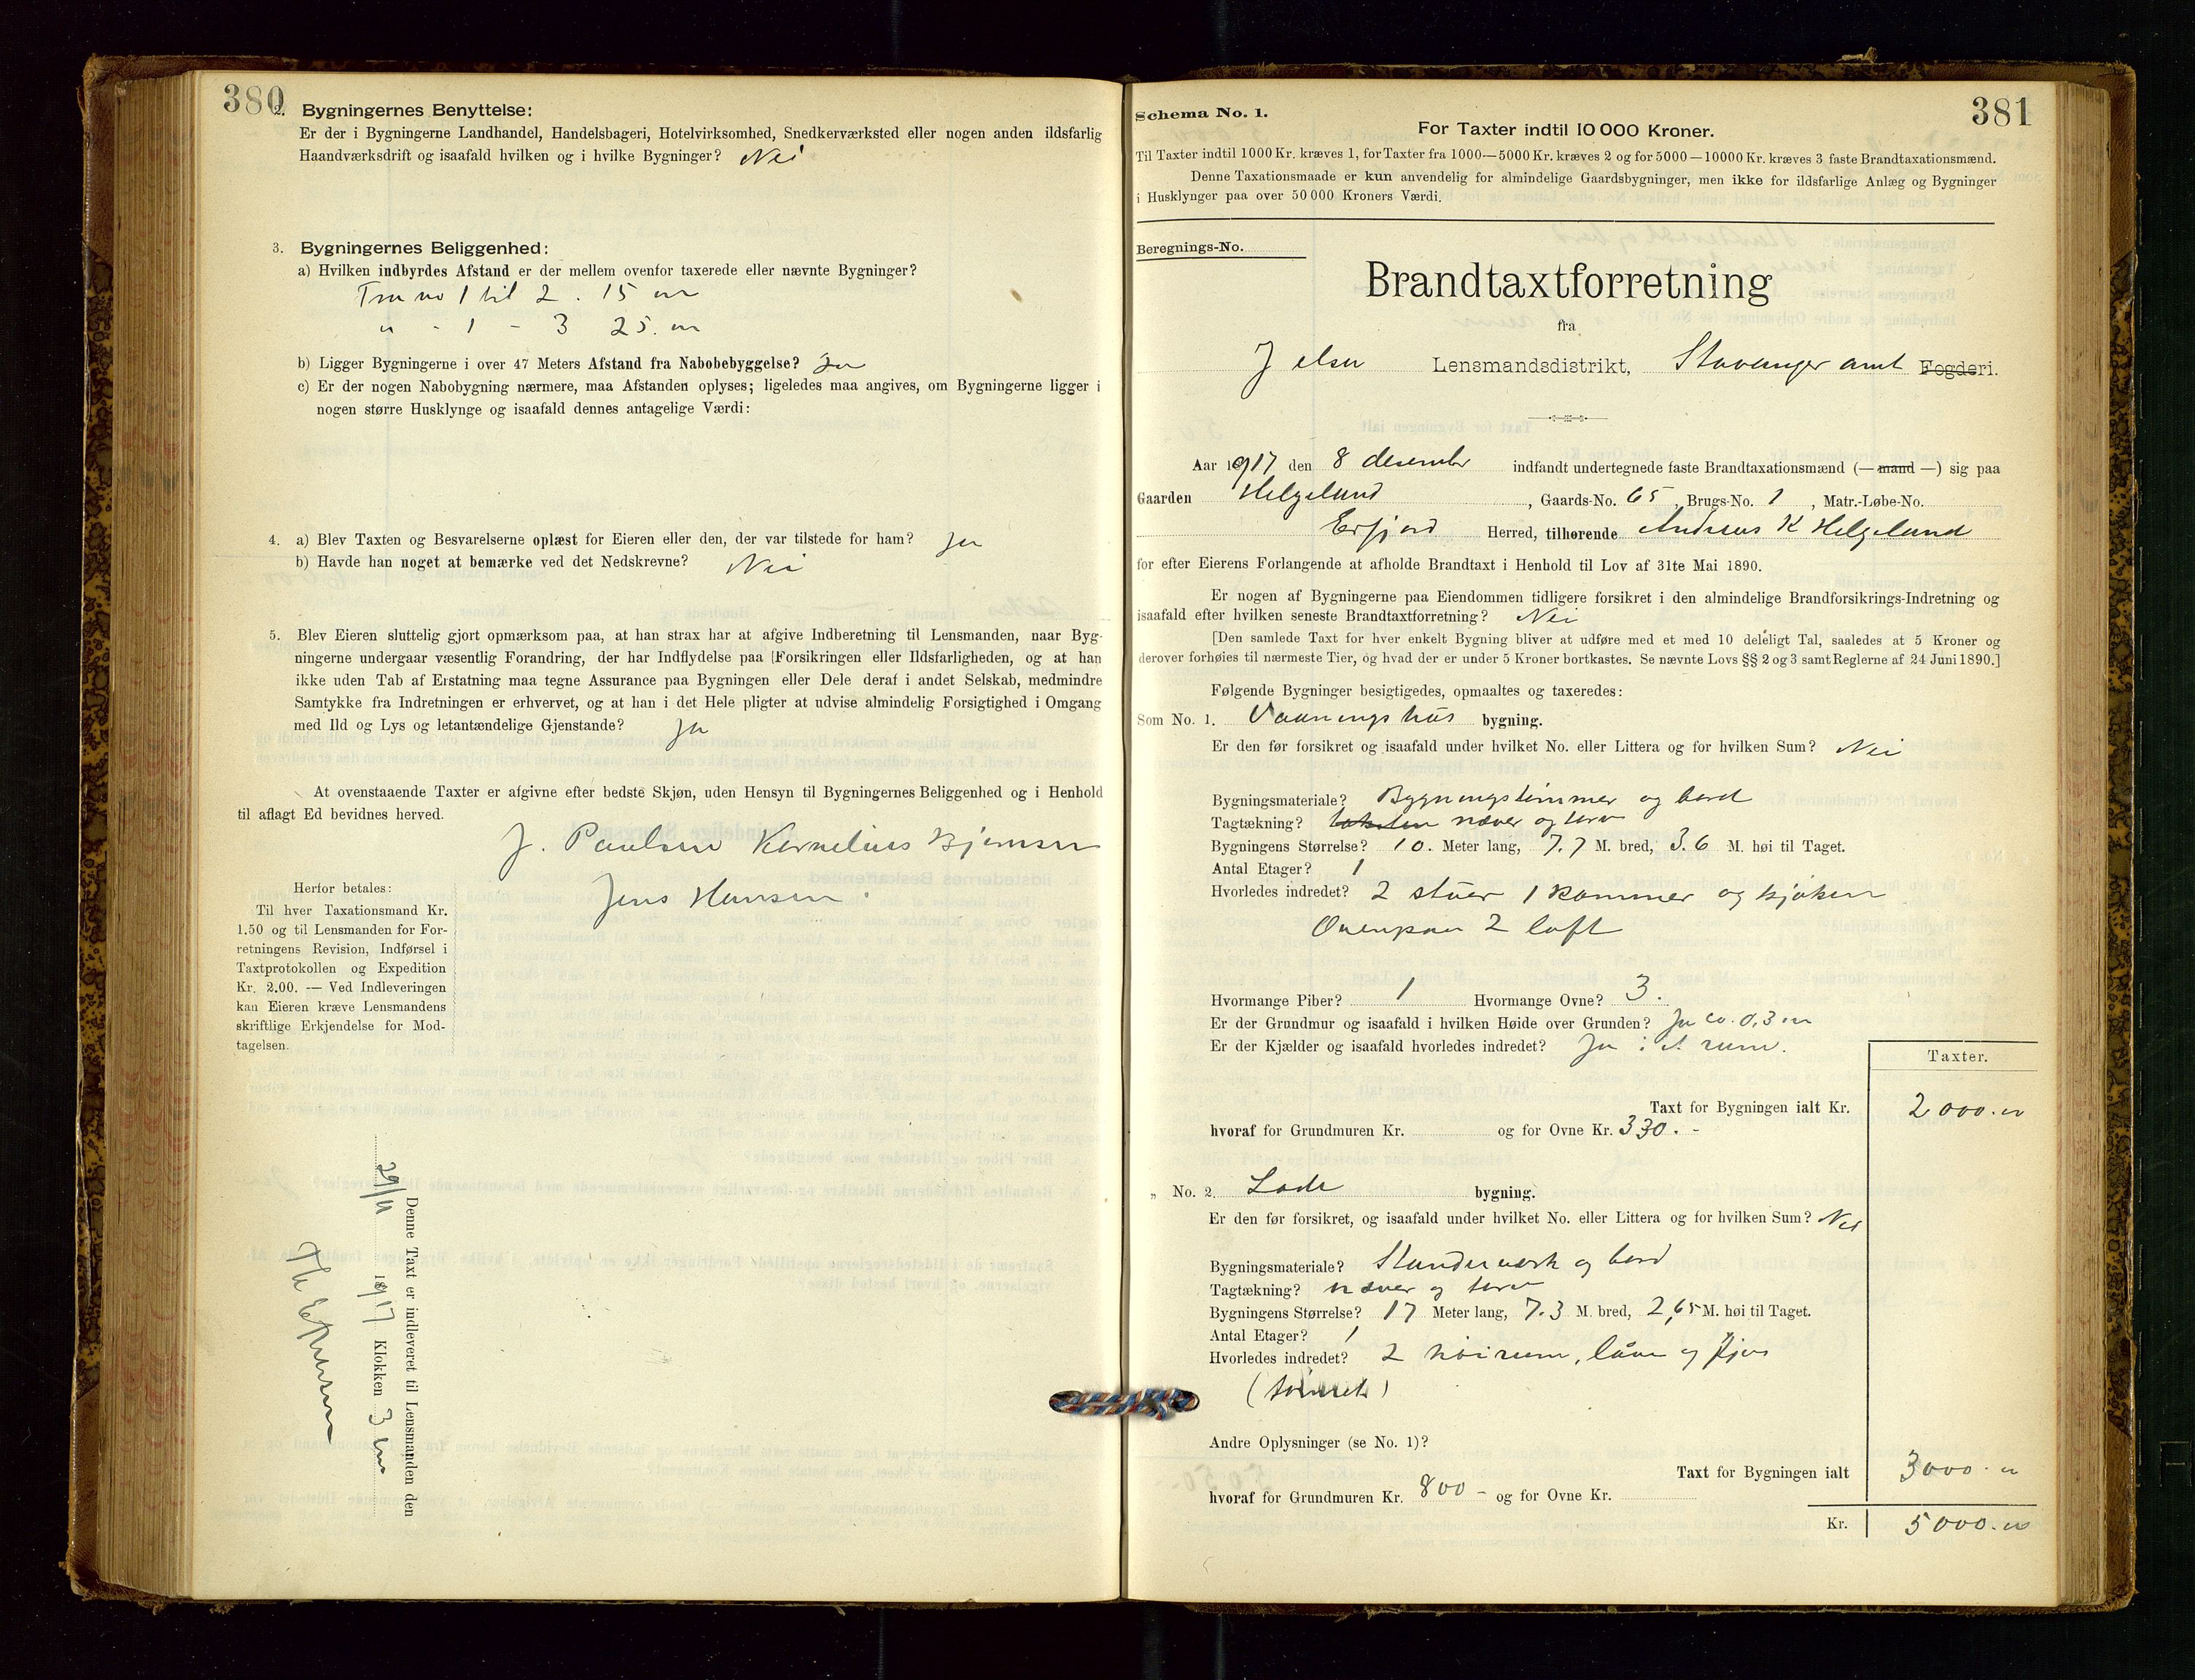 380
2. Bygningernes Benyttelse:
Er der i Bygningerne Landhandel, Handelsbageri, Hotelvirksomhed, Snedkerværksted eller nogen anden ildsfarlig
Haandværksdrift og isaafald hvilken og i hvilke Bygninger? Nei
3. Bygningernes Beliggenhed:
a) Hvilken indbyrdes Afstand er der mellem ovenfor taxerede eller nævnte Bygninger?
Fra no 1 til 2 . 15 m
" - 1 - 3 25. m
b) Ligger Bygningerne i over 47 Meters Afstand fra Nabobebyggelse? Ja
c) Er der nogen Nabobygning nærmere, maa Afstanden oplyses; ligeledes maa angives, om Bygningerne ligger i
nogen større Husklynge og isaafald dennes antagelige Værdi:
4. a) Blev Taxten og Besvarelserne oplæst for Eieren eller den, der var tilstede for ham? Ja
b) Havde han noget at bemærke ved det Nedskrevne? Nei
5. Blev Eieren sluttelig gjort opmærksom paa, at han strax har at afgive Indberetning til Lensmanden, naar Byg-
ningerne undergaar væsentlig Forandring, der har Indflydelse paa [Forsikringen eller Ildsfarligheden, og at han
ikke uden Tab af Erstatning maa tegne Assurance paa Bygningen eller Dele deraf i andet Selskab, medmindre
Samtykke fra Indretningen er erhvervet, og at han i det Hele pligter at udvise almindelig Forsigtighed i Omgang
med Ild og Lys og letantændelige Gjenstande? Ja
At ovenstaaende Taxter er afgivne efter bedste Skjøn, uden Hensyn til Bygningernes Beliggenhed og i Henhold
til aflagt Ed bevidnes herved.
J. Paulsen Kornelius Bjørnsen
Jens Hansen
Herfor betales:
Til hver Taxationsmand Kr.
1.50 og til Lensmanden for For-
retningens Revision, Indførsel i
Taxtprotokollen og Expedition
Kr. 2.00. — Ved Indleveringen
kan Eieren kræve Lensmandens
skriftlige Erkjendelse for Mod-
tagelsen.
Denne Taxt er indleveret til Lensmanden den
29/11 1917 Klokken 3 em
381
Schema No. 1.
For Taxter indtil 10 000 Kroner.
Til Taxter indtil 1000 Kr. kræves 1, for Taxter fra 1000—5000 Kr. kræves 2 og for 5000—10000 Kr. kræves 3 faste Brandtaxationsmænd.
Denne Taxationsmaade er kun anvendelig for almindelige Gaardsbygninger, men ikke for ildsfarlige Anlæg og Bygninger
i Husklynger paa over 50 000 Kroners Værdi.
Beregnings-No.
Brandtaxtforretning
fra
Jelsa Lensmandsdistrikt, Stavanger amt Fogderi.
Aar 1917 den 8 desember indfandt undertegnede faste Brandtaxationsmænd (— mand —) sig paa
Gaarden Helgeland, Gaards-No. 65, Brugs-No. 1, Matr.-Løbe-No.
Erfjord Herred, tilhørende Andreas K Helgeland
for efter Eierens Forlangende at afholde Brandtaxt i Henhold til Lov af 31te Mai 1890.
Er nogen af Bygningerne paa Eiendommen tidligere forsikret i den almindelige Brandforsikrings-Indretning og
isaafald efter hvilken seneste Brandtaxtforretning? Nei
[Den samlede Taxt for hver enkelt Bygning bliver at udføre med et med 10 deleligt Tal, saaledes at 5 Kroner og
derover forhøies til nærmeste Tier, og hvad der er under 5 Kroner bortkastes. Se nævnte Lovs §§ 2 og 3 samt Reglerne af 24 Juni 1890.]
Følgende Bygninger besigtigedes, opmaaltes og taxeredes:
Som No. 1. Vaaningshus bygning.
Er den før forsikret og isaafald under hvilket No. eller Littera og for hvilken Sum? Nei
Bygningsmateriale? Bygningstømmer og bord
Tagtækning? næver og torv
Bygningens Størrelse? 10. Meter lang, 7.7 M. bred, 3.6 M. høi til Taget.
Antal Etager? 1
Hvorledes indredet? 2 stuer 1 kammer og kjøken
Ovenpaa 2 loft
Hvormange Piber? 1 Hvormange Ovne? 3.
Er der Grundmur og isaafald i hvilken Høide over Grunden? Ja ca. 0,3 m
Er der Kjælder og isaafald hvorledes indredet? Ja i et rum.
Taxter.
Taxt for Bygningen ialt Kr. 2000. "
hvoraf for Grundmuren Kr. og for Ovne Kr. 330. -
„ No. 2. Lade bygning.
Er den før forsikret, og isaafald under hvilket No. eller Littera og for hvilken Sum? Nei
Bygningsmateriale? Standerverk og bord
Tagtækning? næver og torv
Bygningens Størrelse? 17 Meter lang, 7.3 M. bred, 2,65 M. høi til Taget.
Antal Etager? 1
Hvorledes indredet? 2 høirum, låve og fjøs
(tømret)
Andre Oplysninger (se No. 1)?
Taxt for Bygningen ialt 3000. "
hvoraf for Grundmuren Kr. 800 - og for Ovne Kr.
Kr. 5000. "